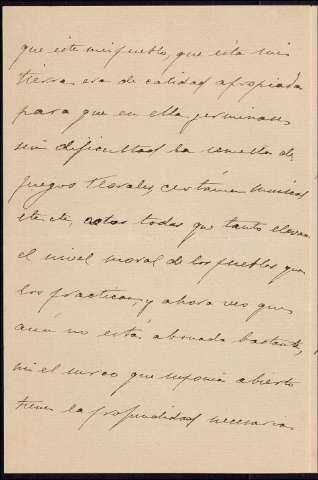 que este mi pueblo, que esta mi
tierra era de calidad apropiada
para que en ella germinase
sin dificultad la semilla de
Juegos Florales, certámen musical
etc etc, actos todos que tanto elevan
el nivel moral de los pueblos que
los practican, y ahora veo que
aún no está abonada bastante,
ni el surco que suponia abierto
tiene la profundidad necesaria